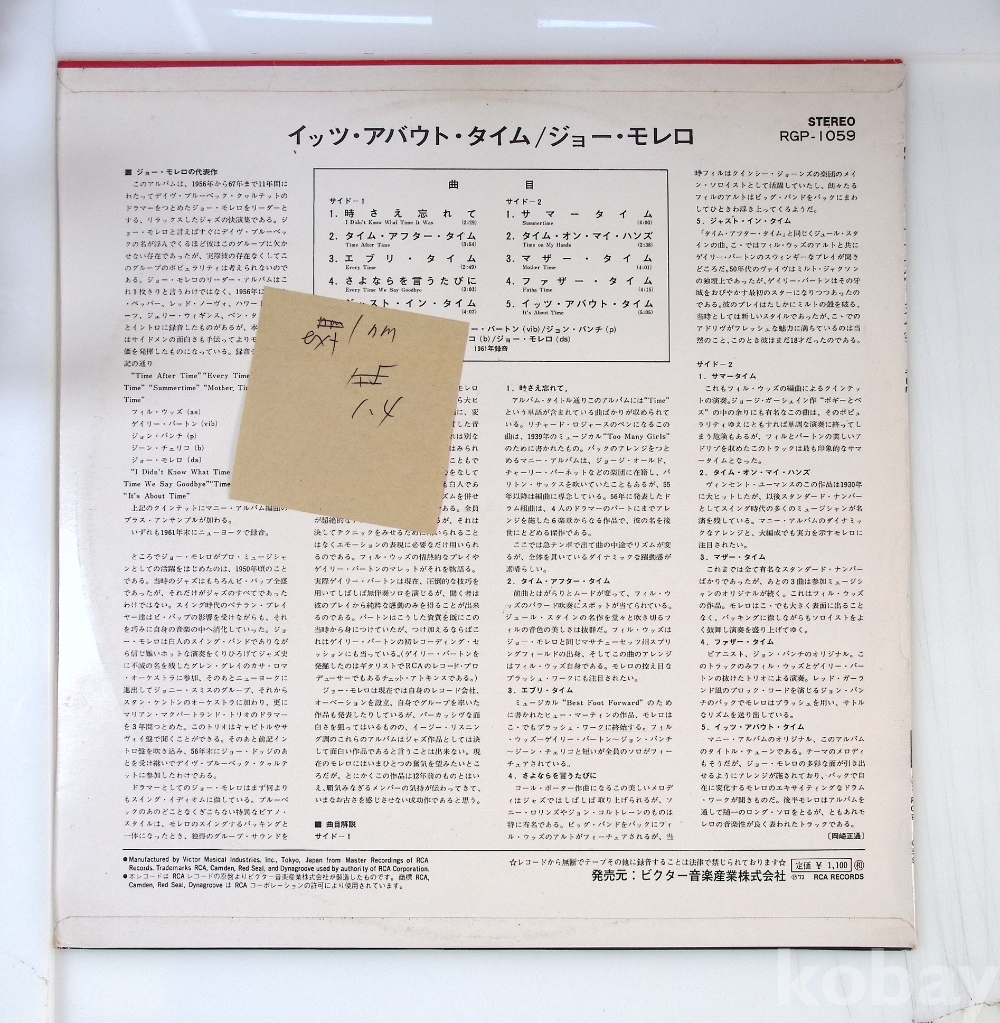 イッツ・アバウト・タイム/ジョー・モレロ
STEREO
RGP-1059
■ ジョー・モレロの代表作
このアルバムは、1956年から67年まで11年間に
わたってデイヴ・ブルーベック・クヮルテットの
ドラマーをつとめたジョー・モレロをリーダーと
する、リラックスしたジャズの快演集である。ジ
ョー・モレロと言えばすぐにデイヴ・ブルーベッ
クの名が浮んでくるほど彼はこのグループに欠か
せない存在であったが、実際彼の存在なくしてこ
のグループのポピュラリティは考えられないので
ある。ジョー・モレロのリーダー・アルバムはこ
れ1枚きりと言うわけではなく、1956年に
・ペッパー、レッド・ノーヴォ、ハワー
ーツ、ジェリー・ウィギンス、ベン・タ
とイントロに録音したものがあるが、本
はサイドメンの面白さも手伝ってよりモ
価を発揮したものになっている。録音
記の通り
"Time After Time" "Every Time
Time" "Summertime" "Mother, Ti
Time"
フィル・ウッズ (as)
ゲイリー・バートン (vib)
ジョン・バンチ (p)
ジーン・チェリコ (b)
ジョー・モレロ (ds)
"I Didn't Know What Time
Time We Say Goodbye" "Time
"It's About Time"
上記のクインテットにマニー・アルバム編曲の
ブラス・アンサンブルが加わる。
いずれも1961年末にニューヨークで録音。
ところでジョー・モレロがプロ・ミュージシャ
ンとしての活躍をはじめたのは、1950年頃のこと
である。当時のジャズはもちろんビ・バップ全盛
であったが、それだけがジャズのすべてであった
わけではない。スイング時代のベテラン・プレイ
ヤー達はビ・バップの影響を受けながらも、それ
を巧みに自身の音楽の中へ消化していった。ジョ
ー・モレロは白人のスイング・バンドでありなが
ら信じ難いホットな演奏をくりひろげてジャズ史
に不滅の名を残したグレン・グレイのカサ・ロマ
・オーケストラに参加、そのあとニューヨークに
進出してジョニー・スミスのグループ、それから
スタン・ケントンのオーケストラに加わり、更に
マリアン・マクパートランド・トリオのドラマー
を3年間つとめた。このトリオはキャピトルやサ
ヴォイ盤で聞くことができる。そのあと前記イン
トロ盤を吹き込み、56年末にジョー・ドッジのあ
とを受け継いでデイヴ・ブルーベック・クヮルテ
ットに参加したわけである。
ドラマーとしてのジョー・モレロはまず何より
もスイング・イディオムに徹している。ブルーベ
ックのあのどことなくぎこちない特異なピアノ・
スタイルは、モレロのスイングするバッキングと
一体になったとき、独得のグループ・サウンドを
曲目
サイド-1
1. 時さえ忘れて
I Didn't Know What Time It Was (2:59)
2. タイム・アフター・タイム
Time After Time (3:54)
3. エブリ・タイム
Every Time (2:49)
4. さよならを言うたびに
Every Time We Say Goodbye (3:03)
ジャスト・イン・タイム
(4:07)
サイド-2
1. サマータイム
Summertime (6:00)
2. タイム・オン・マイ・ハンズ
Time on My Hands (2:38)
3. マザー・タイム
Mother Time (4:01)
4. ファザー・タイム
Fathe Time (4:15)
5. イッツ・アバウト・タイム
It's About Time (5:05)
ー・バートン (vib)/ジョン・バンチ (p)
コ (b)/ジョー・モレロ (ds)
1961年録音
ext / nm
1.4
が超絶的な
決してテクニックをみせるために用いられること
はなくエモーションの表現に必要なだけ用いられ
るのである。フィル・ウッズの情熱的なプレイや
ゲイリー・バートンのマレットがそれを物語る。
実際ゲイリー・バートンは現在、圧倒的な技巧を
用いてしばしば無伴奏ソロを演じるが、聞く者は
彼のプレイから純粋な感動のみを得ることが出来
るのである。バートンはこうした資質を既にこの
当時から身につけていたが、つけ加えるならばこ
れはゲイリー・バートンの初レコーディング・セ
ッションにも当っている。(ゲイリー・バートンを
発掘したのはギタリストでRCAのレコード・プロ
デューサーでもあるチェット・アトキンスである。)
ジョー・モレロは現在では自身のレコード会社、
オーベーションを設立、自身でグループを率いた
作品も発表したりしているが、パーカッシヴな面
白さを狙ってはいるものの、イージー・リスニン
グ調のこれらのアルバムはジャズ作品としては決
して面白い作品であると言うことは出来ない。現
在のモレロにはいまひとつの奮気を望みたいとこ
ろだが、とにかくこの作品は12年前のものとはい
え、覇気みなぎるメンバーの気持が伝わってきて、
いまなお古さを感じさせない成功作であると思う。
■ 曲目解説
サイド-1
1. 時さえ忘れて。
アルバム・タイトル通りこのアルバムには"Time"
という単語が含まれている曲ばかりが収められて
いる。リチャード・ロジャースのペンになるこの
曲は、1939年のミュージカル"Too Many Girls"
のために書かれたもの。バックのアレンジをつと
めるマニー・アルバムは、ジョージ・オールド、
チャーリー・バーネットなどの楽団に在籍し、バ
リトン・サックスを吹いていたこともあるが、55
年以降は編曲に専念している。56年に発表したド
ラム組曲は、4人のドラマーのパートにまでアレ
ンジを施した6楽章からなる作品で、彼の名を後
世にとどめる傑作である。
ここでは急テンポで出て曲の中途でリズムが変
るが、全体を貫いているダイナミックな躍動感が
素晴らしい。
2. タイム・アフター・タイム
前曲とはがらりとムードが変って、フィル・ウ
ッズのバラード吹奏にスポットが当てられている。
ジュール・スタインの名作を堂々と吹き切るフィ
ルの音色の美しさは抜群だ。フィル・ウッズは
ジョー・モレロと同じマサチューセッツ州スプリ
ングフィールドの出身、そしてこの曲のアレンジ
はフィル・ウッズ自身である。モレロの控え目な
ブラッシュ・ワークにも注目されたい。
3. エブリ・タイム
ミュージカル"Best Foot Forward"のため
に書かれたヒュー・マーティンの作品、モレロは
こゝでもブラッシュ・ワークに終始する。フィル
・ウッズ―ゲイリー・バートン―ジョン・バンチ
〜ジーン・チェリコと短いが全員のソロがフィー
チュアされている。
4. さよならを言うたびに
コール・ポーター作曲になるこの美しいメロデ
ィはジャズではしばしば取り上げられるが、ソ
ニー・ロリンズやジョン・コルトレーンのものは
特に有名である。ビッグ・バンドをバックにフィ
ル・ウッズのアルトがフィーチュアされるが、当
時フィルはクインシー・ジョーンズの楽団のメイ
ン・ソロイストとして活躍していたし、朗々たる
フィルのアルトはビッグ・バンドをバックにまわ
してひときわ浮き上ってくるようだ。
5. ジャスト・イン・タイム
「タイム・アフター・タイム」と同じくジュール・スタ
インの曲、こゝではフィル・ウッズのアルトと共に
ゲイリー・バートンのスウィンギーなプレイが聞き
どころだ。50年代のヴァイヴはミルト・ジャクソン
の独壇上であったが、ゲイリー・バートンはその牙
城をおびやかす最初のスターになりつつあったの
である。彼のプレイはたしかにミルトの殻を破る、
当時としては新しいスタイルであったが、こゝでの
アドリヴがフレッシュな魅力に満ちているのは当
然のこと、このとき彼はまだ18才だったのである。
サイド-2
1. サマータイム
これもフィル・ウッズの編曲によるクインテッ
トの演奏。ジョージ・ガーシュイン作"ポギーとベ
ス"の中の余りにも有名なこの曲は、そのポピュ
ラリティゆえにともすれば単調な演奏に終ってし
まう危険もあるが、フィルとバートンの美しいア
ドリブを収めたこのトラックは最も印象的なサマ
ータイムとなった。
2. タイム・オン・マイ・ハンズ
ヴィンセント・ユーマンスのこの作品は1930年
に大ヒットしたが、以後スタンダード・ナンバー
としてスイング時代の多くのミュージシャンが名
演を残している。マニー・アルバムのダイナミッ
クなアレンジと、大編成でも実力を示すモレロに
注目されたい。
3. マザー・タイム
これまでは全て有名なスタンダード・ナンバー
ばかりであったが、あとの3曲は参加ミュージシ
ャンのオリジナルが続く。これはフィル・ウッズ
の作品。モレロはこゝでも大きく表面に出ること
なく、バッキングに徹しながらもソロイストをよ
く鼓舞し演奏を盛り上げてゆく。
4. ファザー・タイム
ピアニスト、ジョン・バンチのオリジナル。こ
のトラックのみフィル・ウッズとゲイリー・バー
トンの抜けたトリオによる演奏。レッド・ガーラ
ンド風のブロック・コードを演じるジョン・バン
チのバックでモレロはブラッシュを用い、サトル
なリズムを送り出している。
5. イッツ・アバウト・タイム
マニー・アルバムのオリジナル、このアルバム
のタイトル・チューンである。テーマのメロディ
もそうだが、ジョー・モレロの多彩な面が引き出
せるようにアレンジが施されており、バックで自
在に変化するモレロのエキサイティングなドラム
・ワークが聞きものだ。後半モレロはアルバムを
通して随一のロング・ソロをとるが、ともあれモレ
ロの音楽性が良く表われたトラックである。
[岡崎正通]
●Manufactured by Victor Musical Industries, Inc., Tokyo, Japan from Master Recordings of RCA
Records. Trademarks RCA, Camden, Red Seal, and Dynagroove used by authority of RCA Corporation.
●本レコードは RCA レコードの原盤よりビクター音楽産業株式会社が製造したものです。商標 RCA,
Camden, Red Seal, Dynagroove は RCA コーポレーションの許可により使用されています。
☆レコードから無断でテープその他に録音することは法律で禁じられております☆
発売元：ビクター音楽産業株式会社
定価 ¥ 1,100
Ⓟ'73 RCA RECORDS
kobay